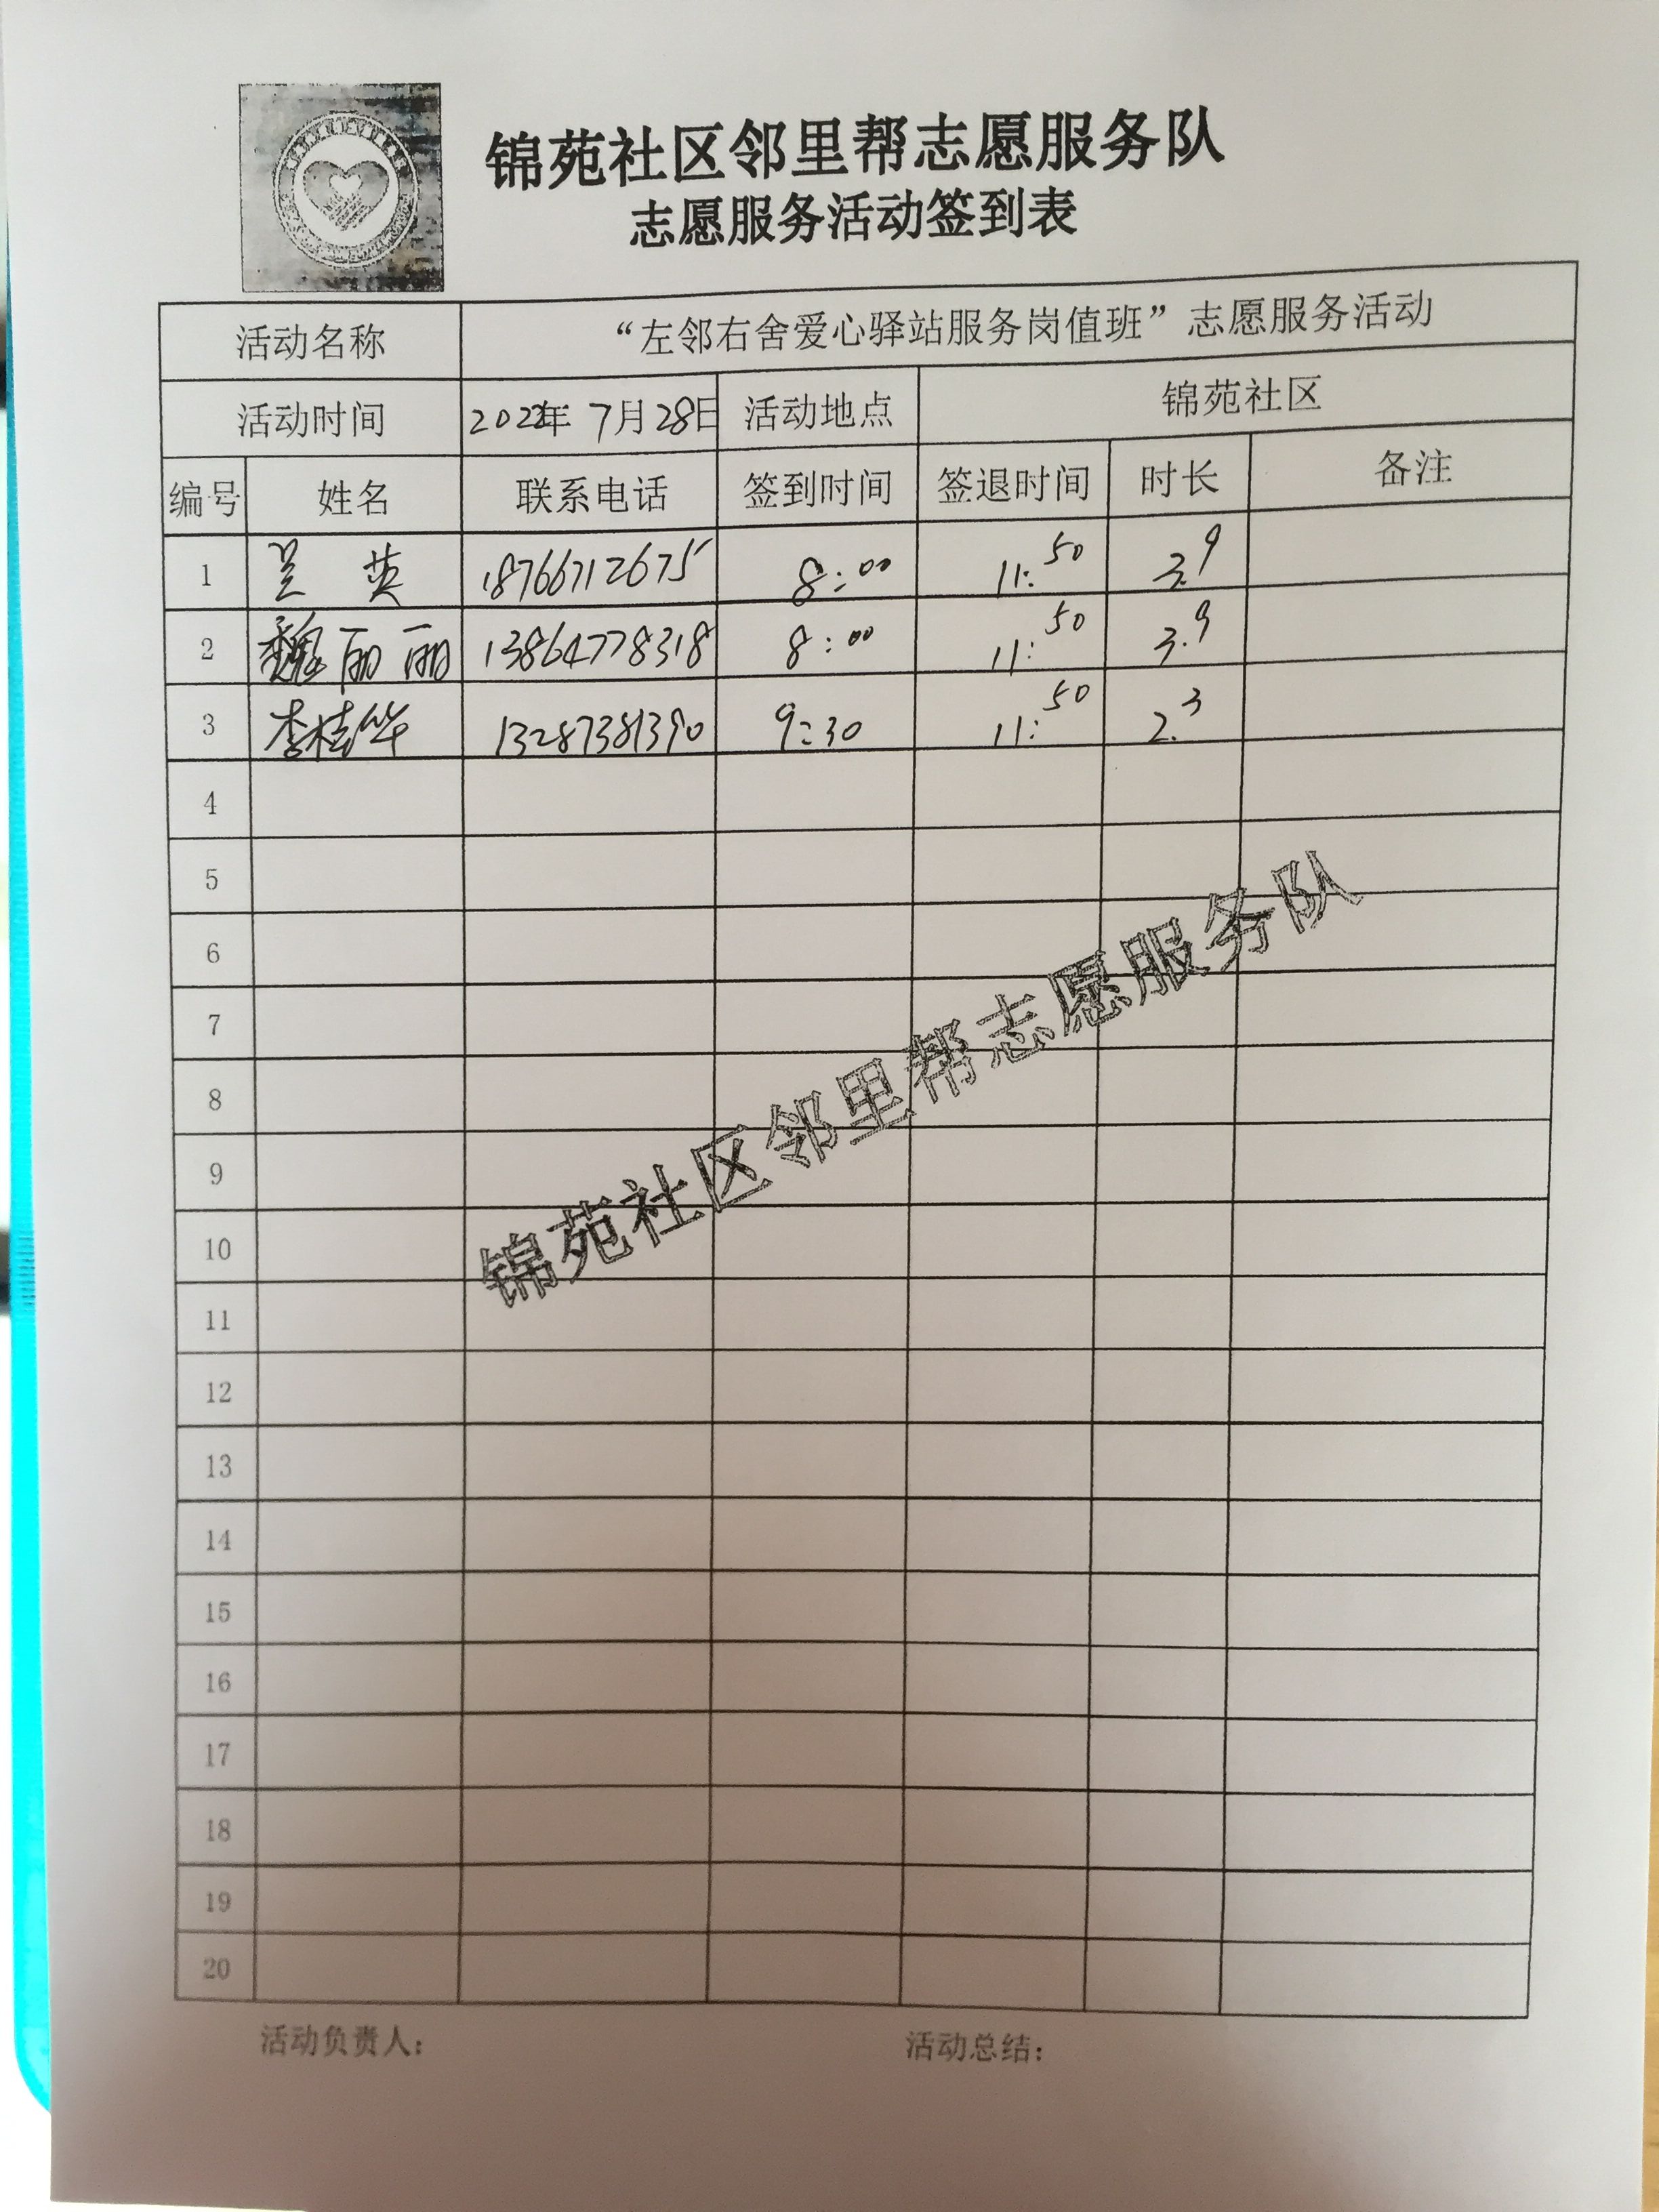 锦苑社区邻里帮志愿服务队
志愿服务活动签到表
活动名称 “左邻右舍爱心驿站服务岗值班”志愿服务活动
活动时间 2022年 7月28日 活动地点 锦苑社区
编号 姓名 联系电话 签到时间 签退时间 时长 备注
1 吴英 18766712675 8:00 11:50 3.9
2 魏丽丽 13864778318 8:00 11:50 3.9
3 李桂华 13287381390 9:30 11:50 2.3
4
5
6
7
8
9
10
11
12
13
14
15
16
17
18
19
20
锦苑社区邻里帮志愿服务队
活动负责人: 活动总结: